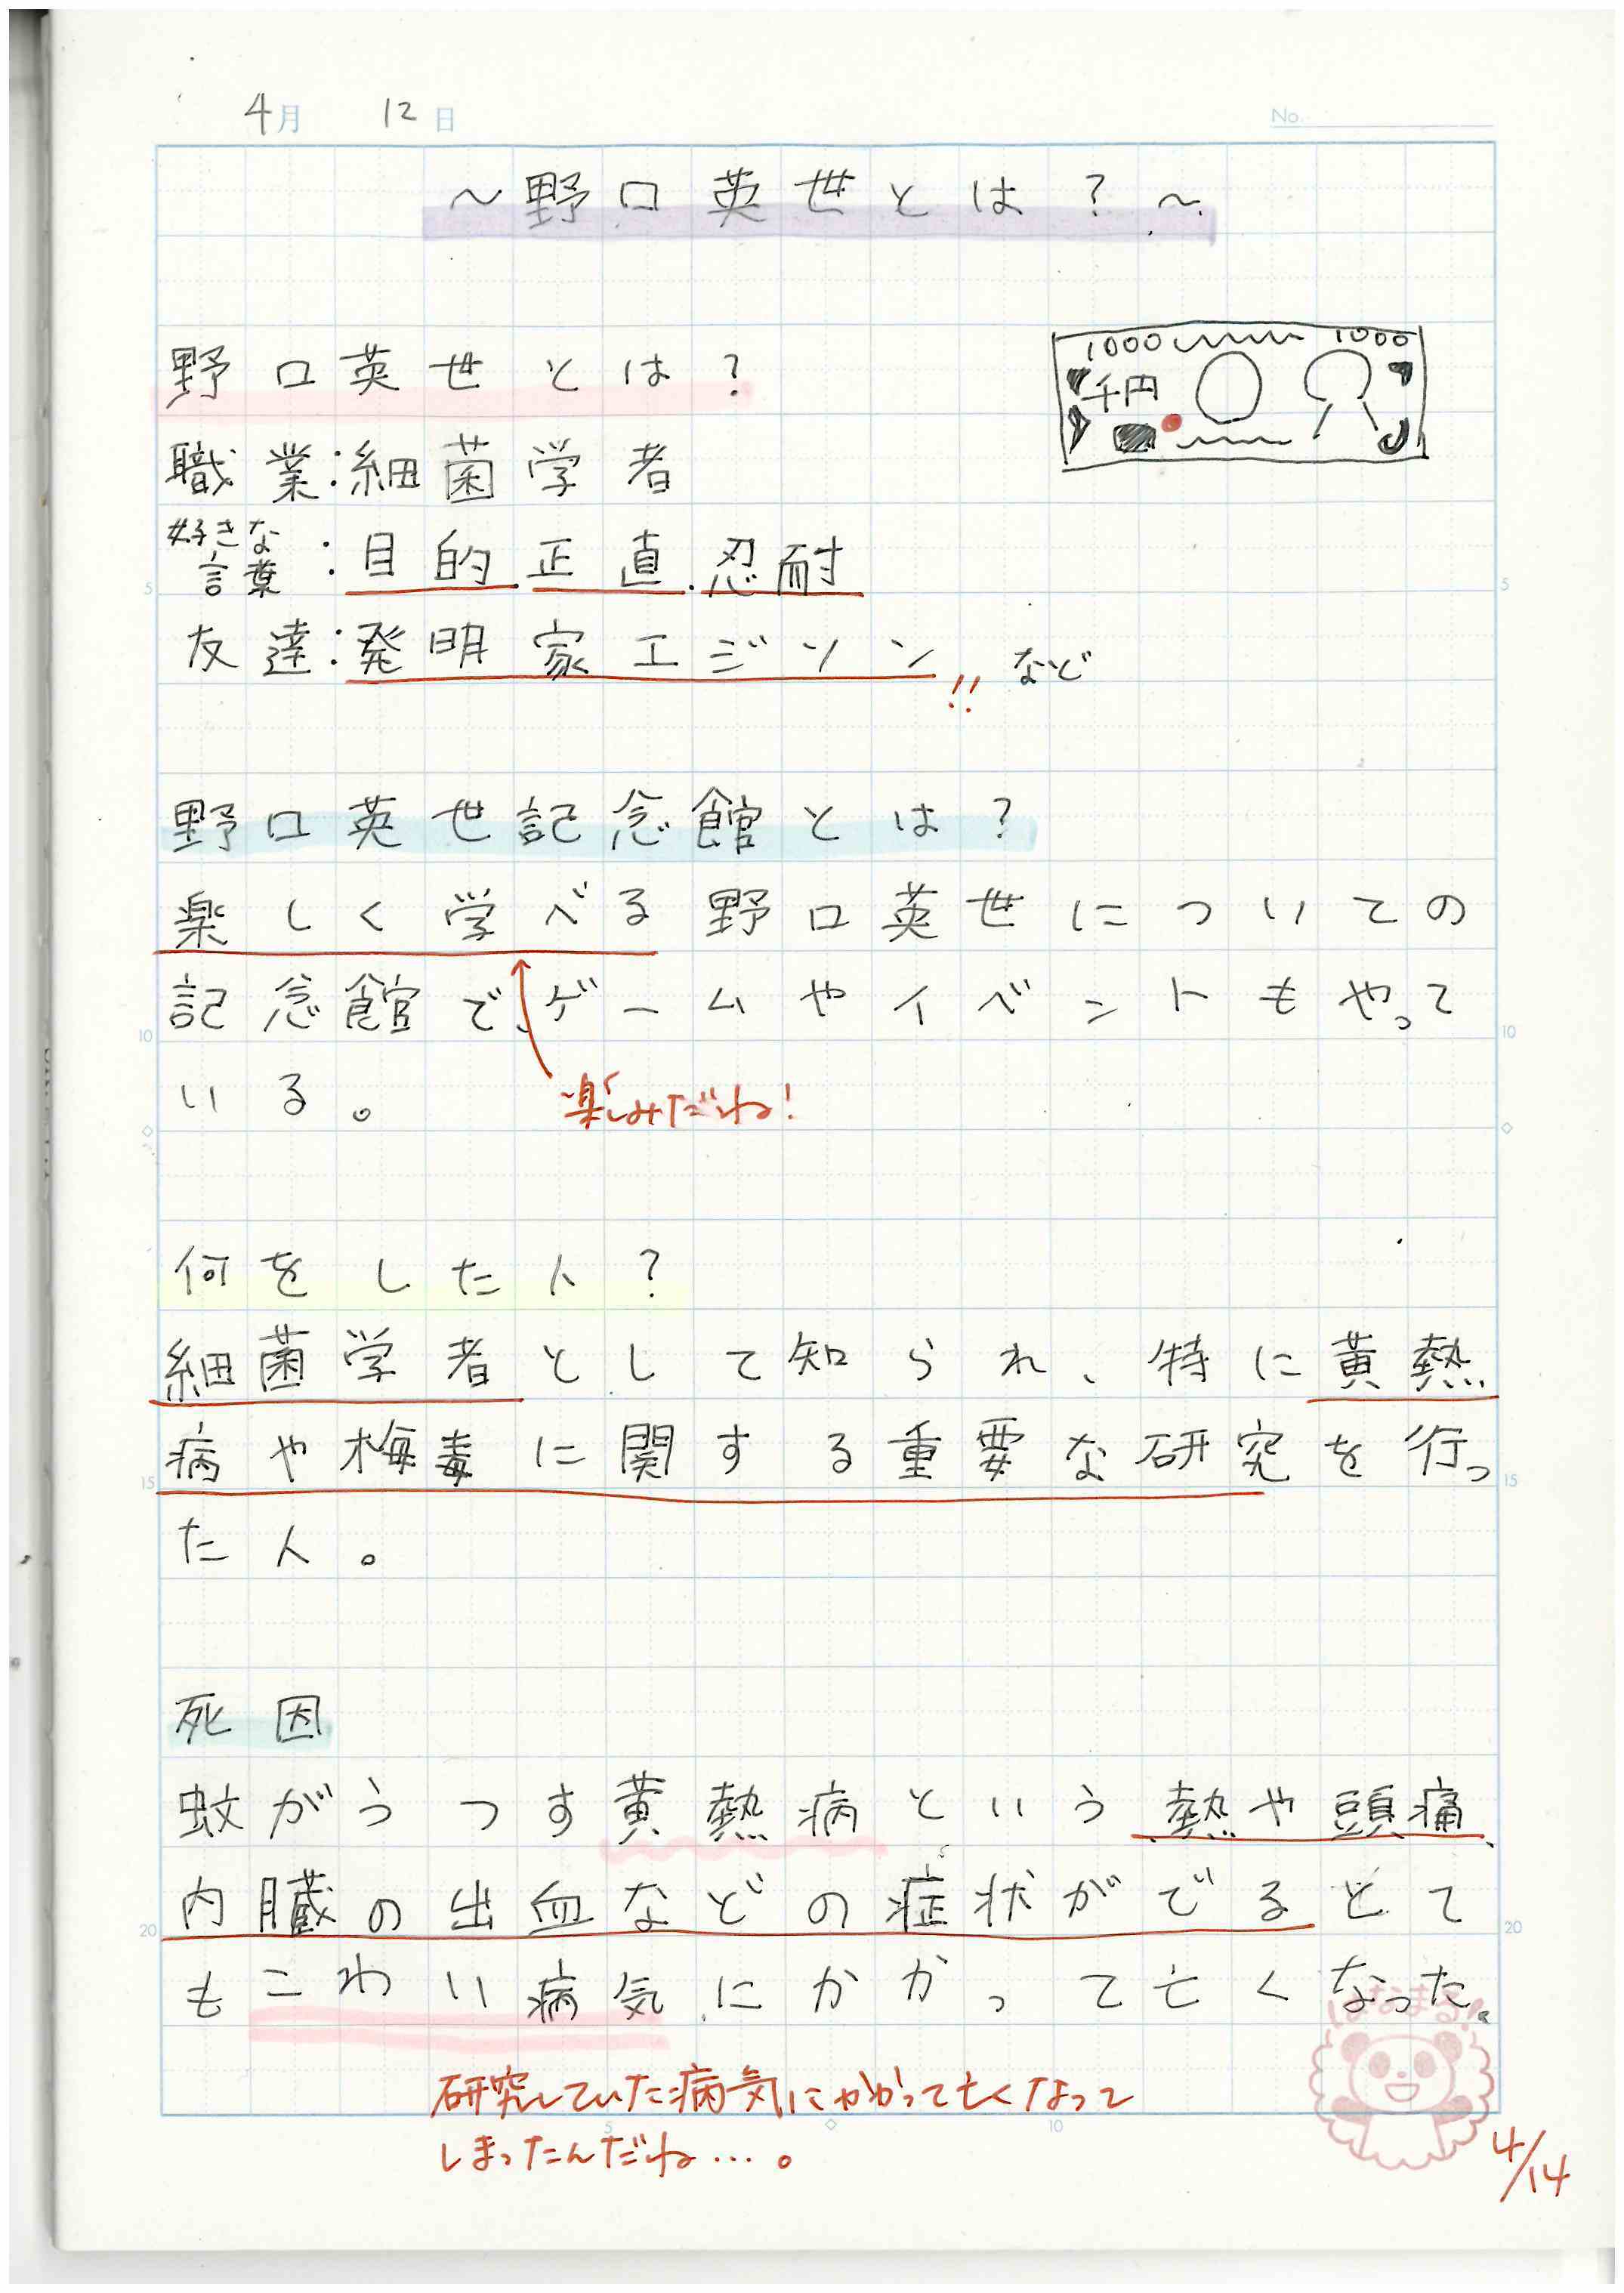 4月 12日
No.
～野口英世とは？～
野口英世とは？
1000 1000
千円
職業：細菌学者
好きな
言葉：目的.正直.忍耐
友達：発明家エジソン!! など
野口英世記念館とは？
楽しく学べる野口英世についての
記念館で、ゲームやイベントもやって
いる。
楽しみだね！
何をした人？
細菌学者として知られ、特に黄熱
病や梅毒に関する重要な研究を行っ
た人。
死因
蚊がうつす黄熱病という熱や頭痛、
内臓の出血などの症状がでるとて
もこわい病気にかかって亡くなった。
はなまる!
研究していた病気にかかって亡くなって
しまったんだね…。
4/14
5
5
10
10
15
15
20
20
5
10